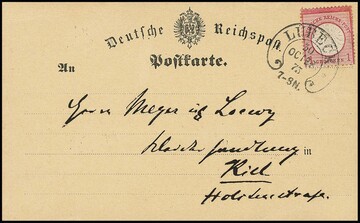 Deutsche Reichspost.
LÜBECK
OCTBR
73
7-8N.
An
Postkarte.
Herrn Meyer & Loewy
in
Kiel
Holstenstrasse.